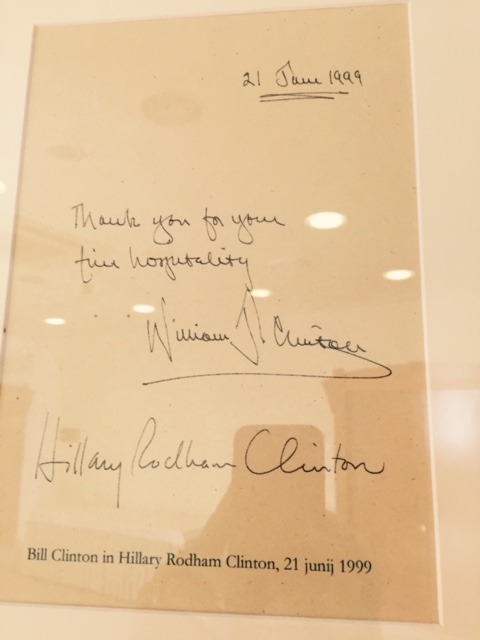 21 June 1999
Thank you for your
fine hospitality
William J. Clinton
Hillary Rodham Clinton
Bill Clinton in Hillary Rodham Clinton, 21 junij 1999